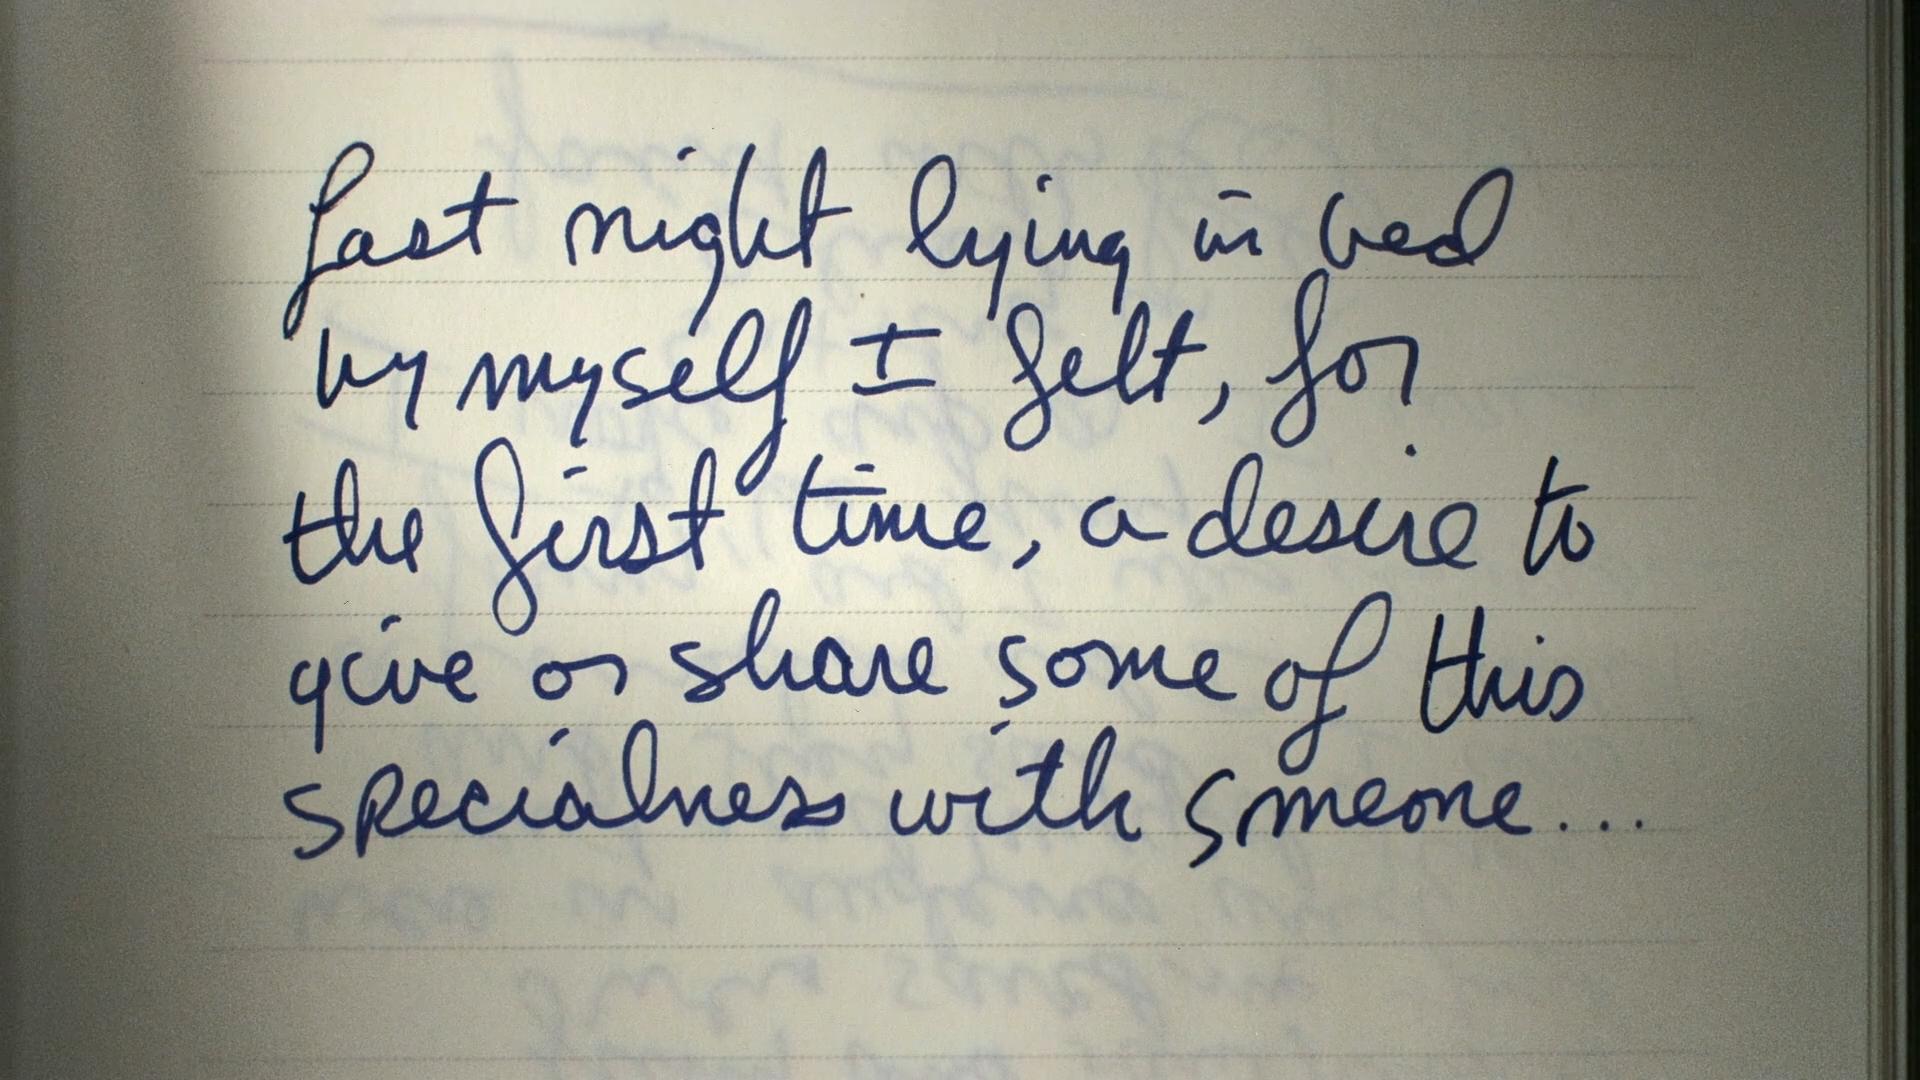 Last night lying in bed
by myself I felt, for
the first time, a desire to
give or share some of this
specialness with smeone...